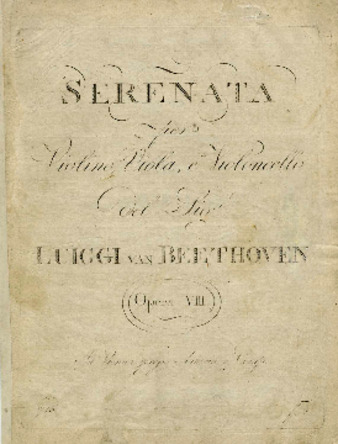 SERENATA
per
Violino, Viola, e Violoncello
Del Sigr
LUIGGI VAN BEETHOVEN
Opera VIII
A Vienne